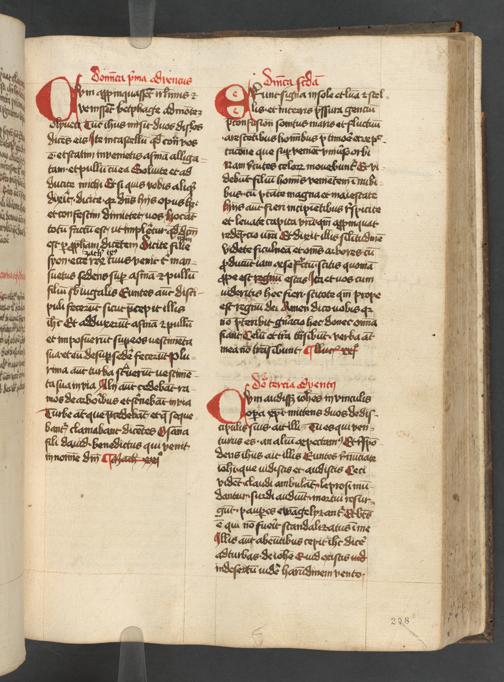 Dominica prima adventus
Cum appropinquasset ihesus
venisset bethphage ad monte
oliveti Tunc ihesus misit duos discipulos
dicens eis Ite in castellum quod contra vos
est et statim invenietis asinam alliga
tam et pullum cum ea Solvite et ad
ducite michi Et si quis vobis aliquid
dixerit dicite quia dominus hiis opus habet
et confestim dimittet vos Hoc autem
totum factum est ut impleretur quod dictum
est per prophetam dicentem Dicite filie
syon ecce rex tuus venit tibi man
suetus sedens super asinam et pullum
filium subiugalis Euntes autem disci
puli fecerunt sicut precepit illis
ihesus Et adduxerunt asinam et pullum
et imposuerunt super eos vestimenta
sua et eum desuper sedere fecerunt Plu
rima autem turba straverunt vestime
ta sua in via Alii autem cedebant ra
mos de arboribus et sternebant in via
Turbe autem que precedebant et que seque
bantur clamabant dicentes Osanna
filio david benedictus qui venit
in nomine domini
Dominica secunda
Erunt signa in sole et luna et stel
lis et in terris pressura gencium
pre confusione sonitus maris et fluctuum
arescentibus hominibus pre timore et expec
tacione que supervenient universo orbi
Nam virtutes celorum movebuntur Et vi
debunt filium hominis venientem in nubi
bus cum potestate magna et maiestate
Hiis autem fieri incipientibus respicite
et levate capita vestra quoniam appropinquat
redempcio vestra Et dixit illis similitudinem
videte ficulneam et omnes arbores cum
producunt iam ex se fructum scitis quoniam
prope est regnum estas Ita et vos cum
videritis hec fieri scitote quoniam prope
est regnum dei Amen dico vobis quia
non preteribit generacio hec donec omnia
fiant Celum et terra transibunt verba autem
mea non transibunt Luce xxi
Dominica tercia adventus
Cum audisset iohannes in vinculis
opera christi mittens duos de dis
cipulis suis ait illi Tu es qui ven
turus es an alium expectamus Et respo
dens ihesus ait illis Euntes renunciate
iohanni que vidistis et audistis Ceci
vident claudi ambulant leprosi mu
dantur surdi audiunt mortui resur
gunt pauperes ewangelizantur Et beatus
est qui non fuerit scandalizatus in me
Illis autem abeuntibus cepit ihesus dicere
ad turbas de iohanne Quid existis vid
in desertum videre harundinem vento
228